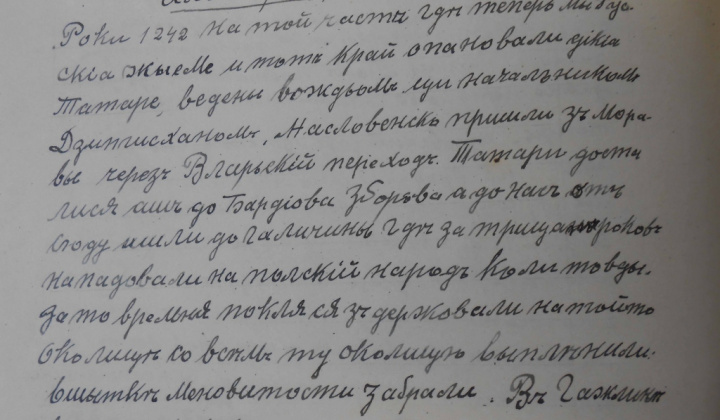 Роки 1242 на той часть гдѣ теперь мы бу
скіа жыеме и тотъ край опановали дікіа
Татаре, ведены вождьомъ начальникомъ
Дзингисханомъ, На словенско пришли зъ Мора-
вы черезъ Вларьскій переходъ. Татари доста
лися ашъ до Бардіова Зборова а до насъ отъ
сюду ишли до Галичины гдѣ за трица роковъ
нападовали на полскій народъ Коли товды
за то времня покля ся зъ держовали на той то
околицѣ со всѣмъ ту околицю выплѣнили
вшыткѣ меновитости забрали. Въ